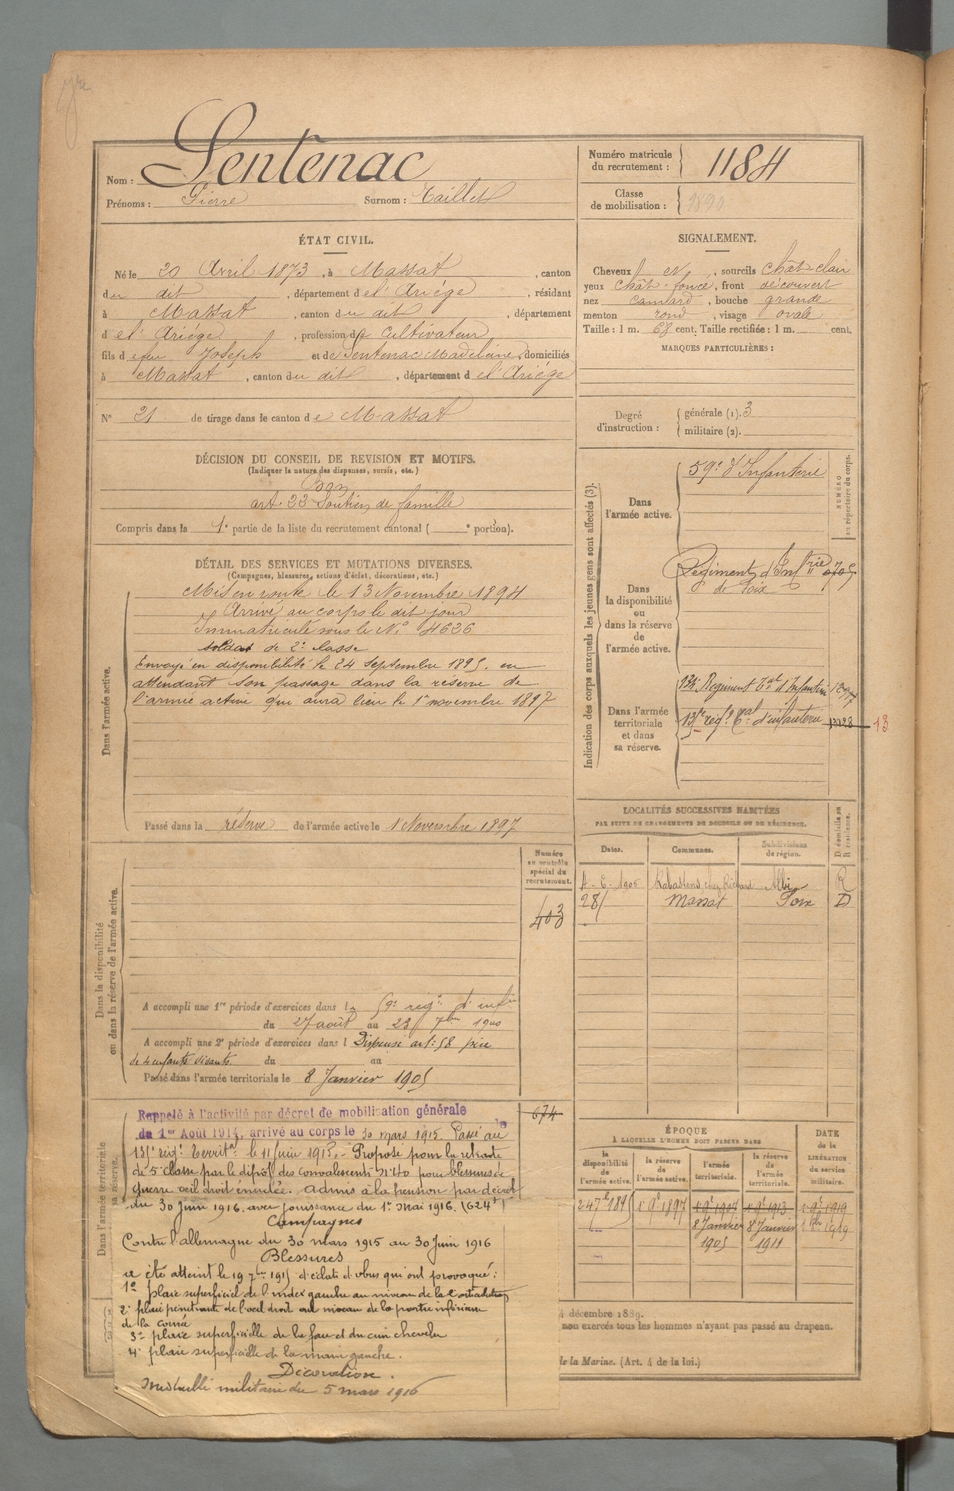 Nom : Sentenac
Prénoms : Pierre Surnom : Taillet
Numéro matricule du recrutement : 1184
Classe de mobilisation : 1890
ÉTAT CIVIL.
Né le 20 Avril 1873, à Massat, canton
du dit, département de l'Ariège, résidant
à Massat, canton du dit, département
de l'Ariège, profession de Cultivateur
fils de feu Joseph et de Sentenac Madelaine, domiciliés
à Massat, canton du dit, département de l'Ariège
N° 21 de tirage dans le canton de Massat
SIGNALEMENT.
Cheveux et, sourcils chât-clair
yeux chât-foncé, front découvert
nez camard, bouche grande
menton rond, visage ovale
Taille : 1 m. 63 cent. Taille rectifiée : 1 m. cent.
MARQUES PARTICULIÈRES :
Degré d'instruction : générale (1). 3
militaire (2).
DÉCISION DU CONSEIL DE REVISION ET MOTIFS.
(Indiquer la nature des dispenses, sursis, etc.)
Bon
art. 23 Soutien de famille
Compris dans la 1e partie de la liste du recrutement cantonal ( e portion).
DÉTAIL DES SERVICES ET MUTATIONS DIVERSES.
(Campagnes, blessures, actions d'éclat, décorations, etc.)
Dans l'armée active.
Mis en route le 13 Novembre 1894
Arrivé au corps le dit jour
Immatriculé sous le N° 4626
soldat de 2e classe
Envoyé en disponibilité le 24 Septembre 1895. en
attendant son passage dans la réserve de
l'armée active qui aura lieu le 1er novembre 1897
Passé dans la réserve de l'armée active le 1 Novembre 1897
Indication des corps auxquels les jeunes gens sont affectés (3).
NUMÉRO au répertoire du corps.
Dans l'armée active.
59e d'Infanterie
Dans la disponibilité ou dans la réserve de l'armée active.
Régiment d'Infrie
de Foix
Dans l'armée territoriale et dans sa réserve.
134 Régiment Tal d'Infanterie
135e régt Tal d'infanterie
13
LOCALITÉS SUCCESSIVES HABITÉES
PAR SUITE DE CHANGEMENTS DE DOMICILE OU DE RÉSIDENCE.
Dates. Communes. Subdivisions de région. D domicile ou R résidence.
Rabastens chez Albi R
Massat Foix D
Dans la disponibilité ou dans la réserve de l'armée active.
Numéro au contrôle spécial du recrutement.
403
A accompli une 1re période d'exercices dans le 59e régt d'infie
du 27 août au 23 7bre 1900
A accompli une 2e période d'exercices dans l Dispensé art. 58 père
de 4 enfants vivants. du au
Passé dans l'armée territoriale le 8 Janvier 1905
674
Dans l'armée territoriale et sa réserve.
Rappelé à l'activité par décret de mobilisation générale
du 1er Août 1914, arrivé au corps le 30 mars 1915. Passé au
135e régt Territal le 11 juin 1915. Proposé pour la retraite
de 5e classe par le dépôt des convalescents N° 40 pour blessures de
guerre œil droit énucléé. admis à la pension par décret
du 30 juin 1916. avec jouissance du 1er mai 1916. (624f)
Campagnes
Contre l'allemagne du 30 mars 1915 au 30 juin 1916
Blessures
a été atteint le 19 7bre 1915 d'éclats d'obus qui ont provoqué :
1° plaie superficiel de l'index gauche au niveau de la
2° plaie pénétrante de l'oeil droit au niveau de la partie inférieure
de la cornée
3° plaie superficielle de la face et du cuir chevelu
4° plaie superficielle de la main gauche.
Décoration.
Médaille militaire du 5 mars 1916
ÉPOQUE
À LAQUELLE L'HOMME DOIT PASSER DANS
DATE de la LIBÉRATION du service militaire.
la disponibilité de l'armée active. la réserve de l'armée active. l'armée territoriale. la réserve de l'armée territoriale.
24 7bre 1895 1 9bre 1897 1 9bre 1907 1 9bre 1913 1 9bre 1919
8 Janvier 1905 8 Janvier 1911
4 décembre 1889.
non exercés tous les hommes n'ayant pas passé au drapeau.
de la Marine. (Art. 4 de la loi.)